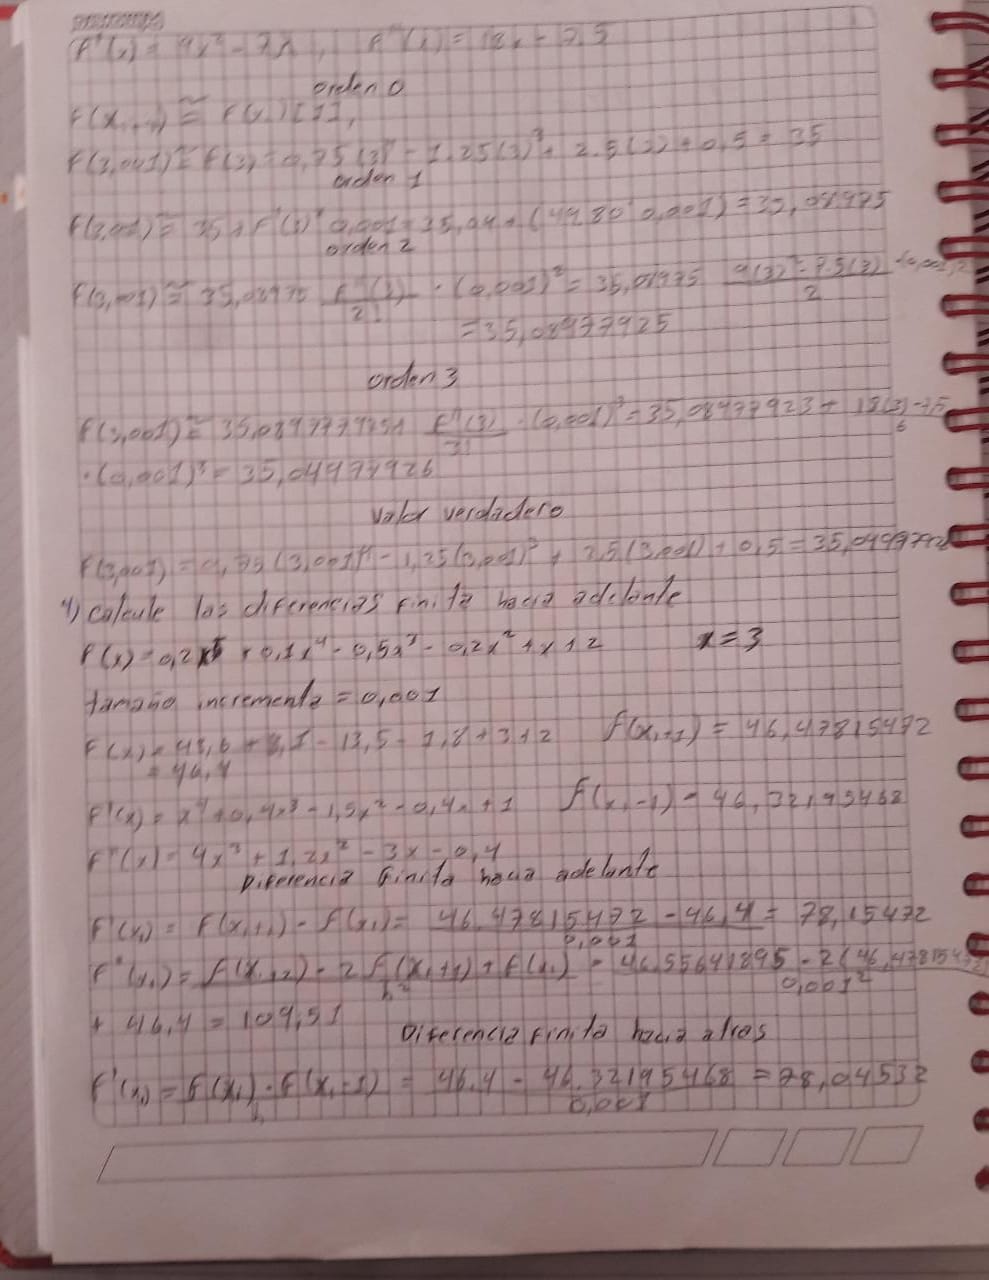 f''(x) = 9x² - 7x, f'''(x) = 18x - 7,5
orden 0
f(x₁₊₁) ≅ f(x₁)
f(3,001) ≅ f(3) = 0,75(3)⁴ - 1.25(3)³ + 2.5(3) + 0,5 = 35
orden 1
f(3,001) ≅ 35 + f'(3) · 0,001 = 35,04 + (49,80 · 0,001) = 35,08975
orden 2
f(3,001) ≅ 35,08975 f''(3)/2! · (0,001)² = 35,08975 9(3)² - 7.5(3)/2 ·(0,001)²
= 35,08977925
orden 3
f(3,001) ≅ f'''(3)/3! · (0,001)³ = 35,08977923 + 18(3) - 7,5/6
·(0,001)³ = 35,04977926
valor verdadero
f(3,001) = 0,75(3,001)⁴ - 1,25(3,001)³ + 2,5(3,001) + 0,5 =
4) calcule las diferencias finita hacia adelante
f(x) = 0,2x⁵ + 0,1x⁴ - 0,5x³ - 0,2x² + x + 2 x = 3
tamaño incremento = 0,001
f(x) = 48,6 + 8,1 - 13,5 - 1,8 + 3 + 2 f(xᵢ+1) = 46,47815472
= 46,4
f'(x) = x⁴ + 0,4x³ - 1,5x² - 0,4x + 1 f(xᵢ-1) = 46,32195468
f''(x) = 4x³ + 1,2x² - 3x - 0,4
Diferencia finita hacia adelante
f'(xᵢ) = f(xᵢ+1) - f(xᵢ) = 46,47815472 - 46,4/0,001 = 78,15472
f''(xᵢ) = f(xᵢ+2) - 2f(xᵢ+1) + f(xᵢ)/h² = 46,55641895 - 2(46,4781547/0,001²
+ 46,4 = 109,51
Diferencia finita hacia atras
f'(xᵢ) = f(xᵢ) - f(xᵢ-1)/h = 46,4 - 46,32195468/0,001 = 78,04532